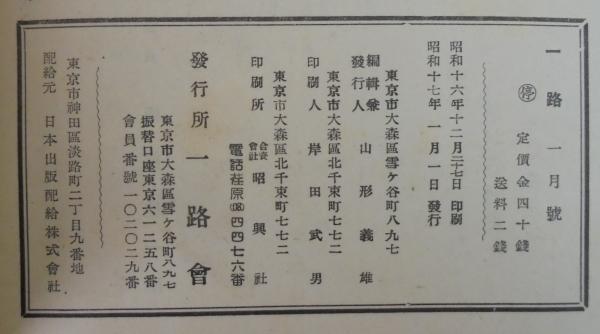 一路 一月號
㊡ 定價金四十錢
送料二錢
昭和十六年十二月二十七日 印刷
昭和十七年 一月一日 發行
東京市大森區雪ケ谷町八九七
編輯兼發行人 山形義雄
東京市大森區北千束町七七二
印刷人 岸田武男
東京市大森區北千束町七七二
印刷所 合資會社 昭興社
電話荏原(08)四四七六番
發行所 一路會
東京市大森區雪ケ谷町八九七
振替口座東京六一二五八番
會員番號一〇二〇二九番
東京市神田區淡路町二丁目九番地
配給元 日本出版配給株式會社